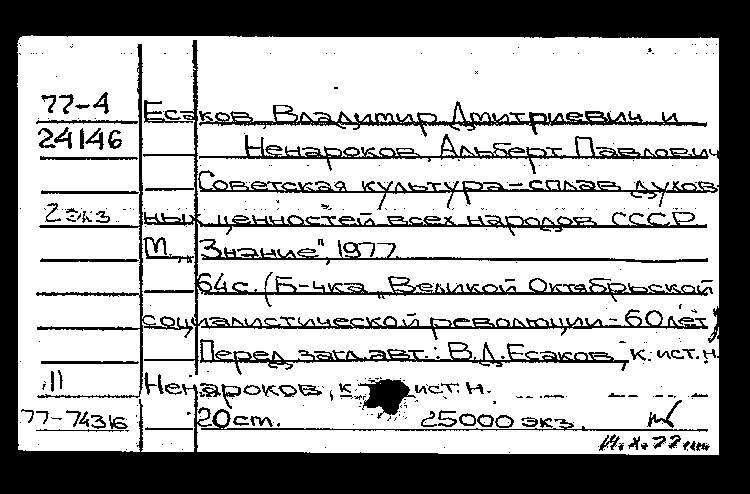 77-4 Есаков, Владимир Дмитриевич и
24146 Ненароков, Альберт Павлович
Советская культура-сплав духов-
2 экз ных ценностей всех народов СССР
М., „Знание", 1977.
64с. (Б-чка „Великой Октябрьской
социалистической революции-60 лет")
Перед загл. авт.: В.Д.Есаков, к. ист.н.
11 Ненароков, к ист.н.
77-74316 20 ст. 25000 экз.